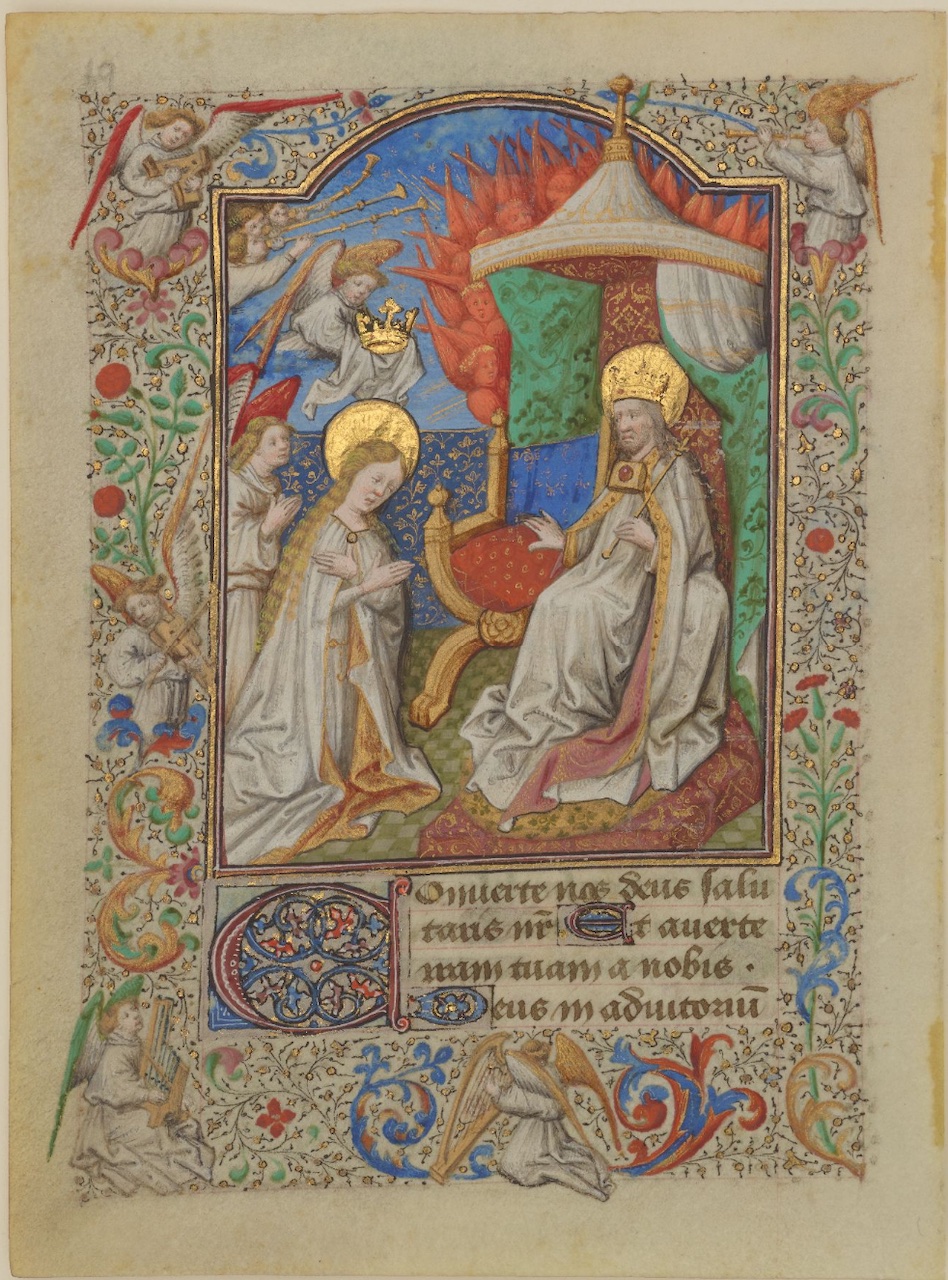 19
Conuerte nos deus salu
taris nr̄ Et auerte
iram tuam a nobis .
Deus in adiutoriū